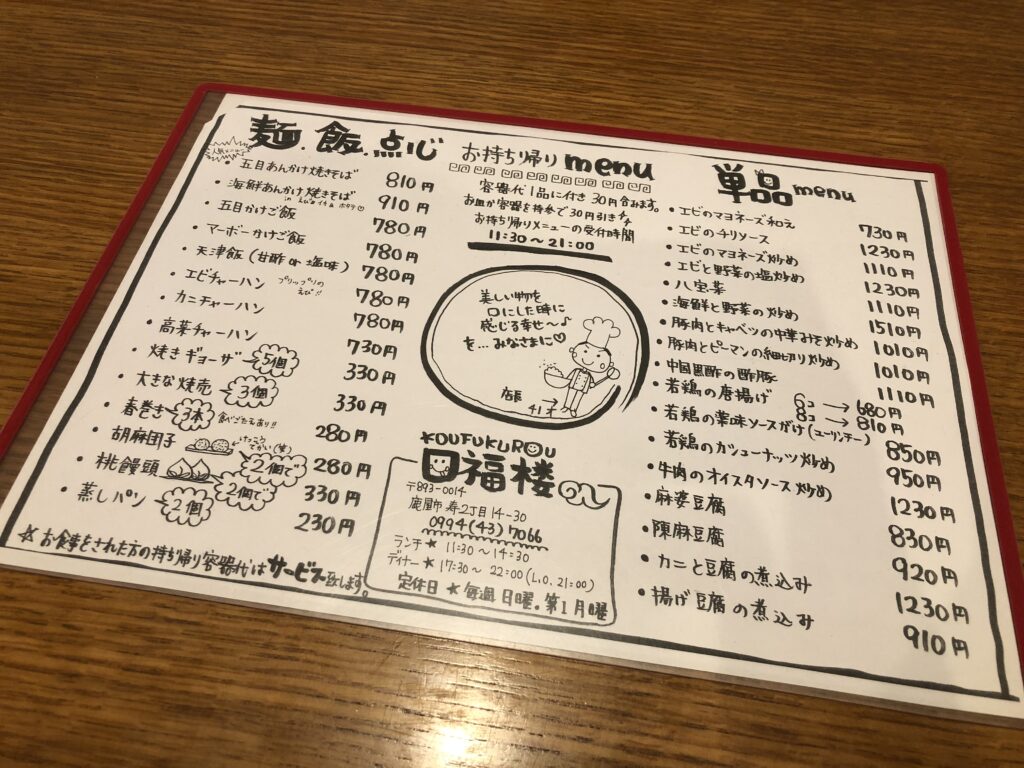 麺.飯.点心
五目あんかけ焼きそば 810円
海鮮あんかけ焼きそば 910円
五目かけご飯 780円
マーボーかけご飯 780円
天津飯(甘酢 or 塩味) 780円
エビチャーハン プリップリのえび!! 780円
カニチャーハン 780円
高菜チャーハン 730円
焼きギョーザ 5個 330円
大きな焼売 3個 330円
春巻き 3本 食べごたえあり!! 280円
胡麻団子 2個で 280円
桃饅頭 2個で 330円
蒸しパン 2個 230円
※お食事をされた方の持ち帰り容器代はサービス致します。
お持ち帰りmenu
容器代1品に付き30円含みます。
お皿か容器を持参で30円引き
お持ち帰りメニューの受付時間
11:30~21:00
美しい物を
口にした時に
感じる幸せ~♪
を…みなさまに♡
店長
41才
YOUFUKUROU
福楼
〒893-0014
鹿屋市 寿2丁目14-30
0994(43)7066
ランチ★ 11:30~14:30
ディナー★ 17:30~22:00(L.O.21:00)
定休日★毎週日曜.第1月曜
単品menu
エビのマヨネーズ和え 730円
エビのチリソース 1230円
エビのマヨネーズ炒め 1110円
エビと野菜の塩炒め 1230円
八宝菜 1110円
海鮮と野菜の炒め 1510円
豚肉とキャベツの中華みそ炒め 1010円
豚肉とピーマンの細切り炒め 1010円
中国黒酢の酢豚 1110円
若鶏の唐揚げ 6コ→680円
8コ→810円
若鶏の薬味ソースがけ(ユーリンチー) 850円
若鶏のカシューナッツ炒め 950円
牛肉のオイスタソース炒め 1230円
麻婆豆腐 830円
陳麻豆腐 920円
カニと豆腐の煮込み 1230円
揚げ豆腐の煮込み 910円